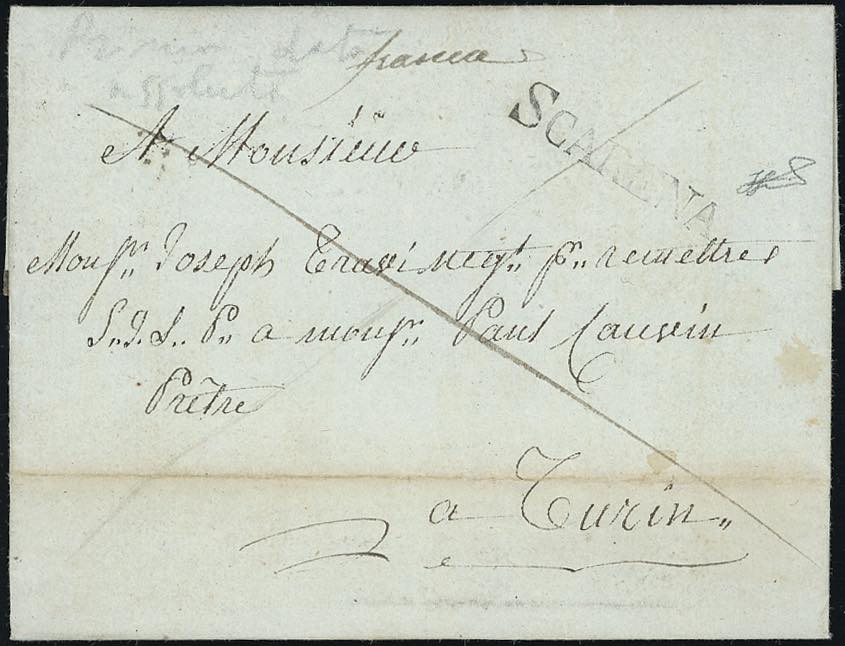 Prima data
assoluta
franca
SCARENA
A Monsieur
Mons.r Joseph Travi neg.t p.r remettre
S. J. L. P. a mons.r Paul Cauvin
Prêtre
a Turin